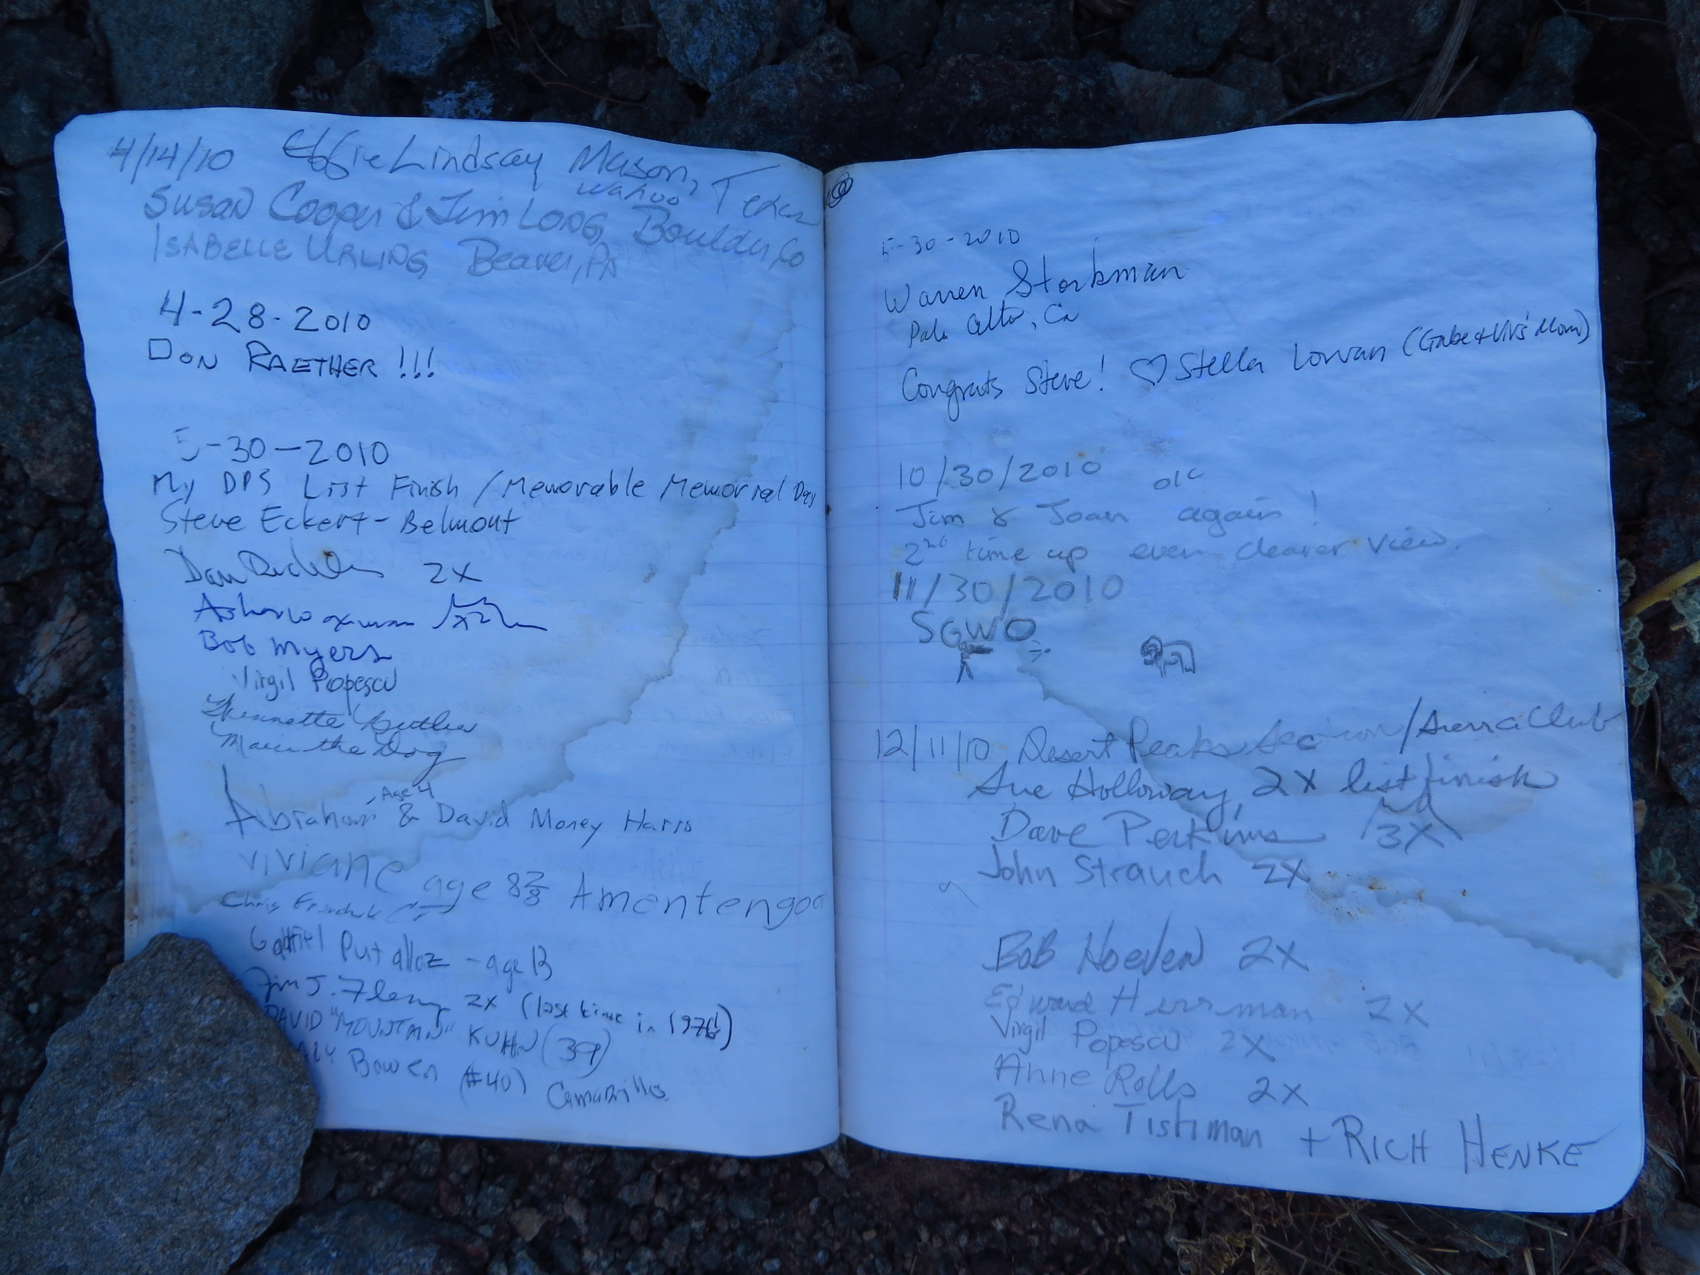 4/14/10 Effie Lindsay Mason, Texas
wahoo
Susan Cooper & Jim Long, Boulder, Co
Isabelle Urling Beaver, PA
4-28-2010
Don Raether!!!
5-30-2010
My DPS List Finish / Memorable Memorial Day
Steve Eckert - Belmont
Dan 2x
Asher Waxman
Bob Myers
Virgil Popescu
the Dog
Abraham Age 4 & David Money Harris
Viviane age 8 2/3
Chris
Gabriel -age 13
Jim J. Fleming 2x (last time in
DAVID "MOUNTAIN" (39)
Bowen (#40) Camarillo
5-30-2010
Warren Storkman
Palo Alto, Ca
Congrats Steve! ♡ Stella (Gabe + Viv's Mom)
10/30/2010
Jim & Joan again!
2nd time up even clearer view.
11/30/2010
SGWO
12/11/10 Desert Peaks Section/Sierra Club
Sue Holloway, 2x list finish
Dave Perkins 3X
John Strauch 2x
Bob Hoeven 2x
Edward Herrman 2x
Virgil Popescu 2x
Anne Rolls 2x
Rena Tishman + RICH HENKE